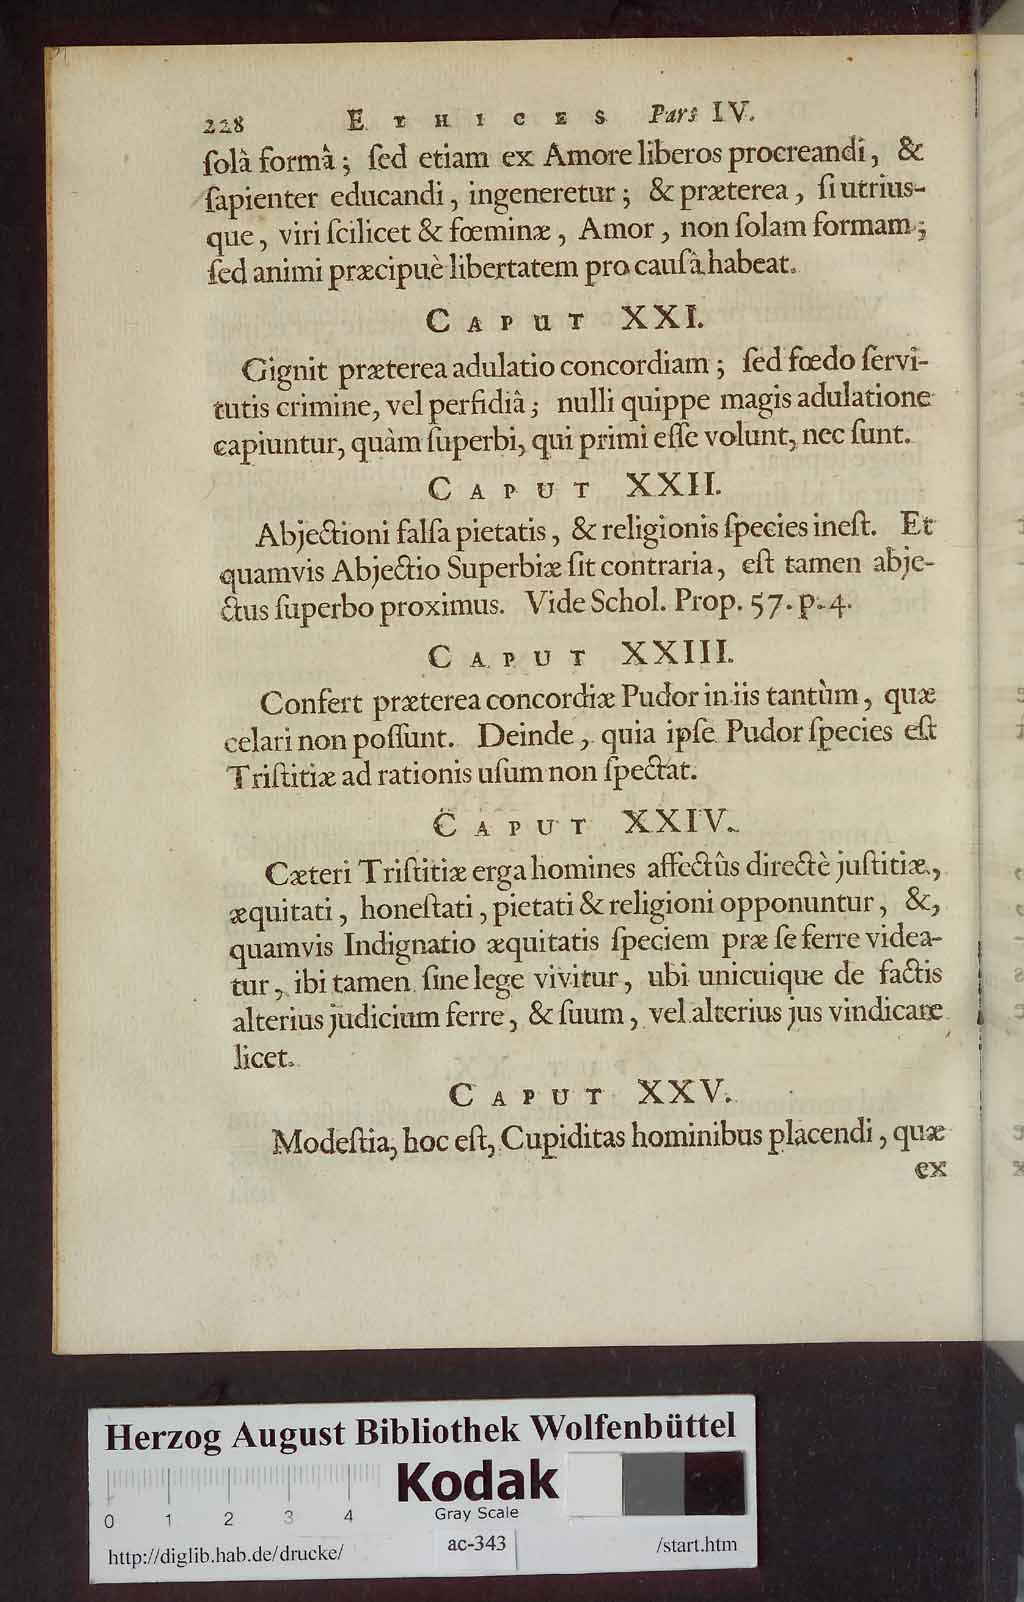 228 ETHICES Pars IV.
ſolâ formâ; ſed etiam ex Amore liberos procreandi, &
ſapienter educandi, ingeneretur; & præterea, ſi utrius-
que, viri ſcilicet & fœminæ, Amor, non ſolam formam;
ſed animi præcipuè libertatem pro cauſâ habeat.
CAPUT XXI.
Gignit præterea adulatio concordiam; ſed fœdo ſervi-
tutis crimine, vel perfidiâ; nulli quippe magis adulatione
capiuntur, quàm ſuperbi, qui primi eſſe volunt, nec ſunt.
CAPUT XXII.
Abjectioni falſa pietatis, & religionis ſpecies ineſt. Et
quamvis Abjectio Superbiæ ſit contraria, eſt tamen abje-
ctus ſuperbo proximus. Vide Schol. Prop. 57. p. 4.
CAPUT XXIII.
Confert præterea concordiæ Pudor in iis tantùm, quæ
celari non poſſunt. Deinde, quia ipſe Pudor ſpecies eſt
Triſtitiæ ad rationis uſum non ſpectat.
CAPUT XXIV.
Cæteri Triſtitiæ erga homines affectûs directè juſtitiæ,
æquitati, honeſtati, pietati & religioni opponuntur, &,
quamvis Indignatio æquitatis ſpeciem præ ſe ferre videa-
tur, ibi tamen ſine lege vivitur, ubi unicuique de factis
alterius judicium ferre, & ſuum, vel alterius jus vindicare
licet.
CAPUT XXV.
Modeſtia, hoc eſt, Cupiditas hominibus placendi, quæ
ex
Herzog August Bibliothek Wolfenbüttel
Kodak
Gray Scale
0 1 2 3 4
http://diglib.hab.de/drucke/ ac-343 /start.htm